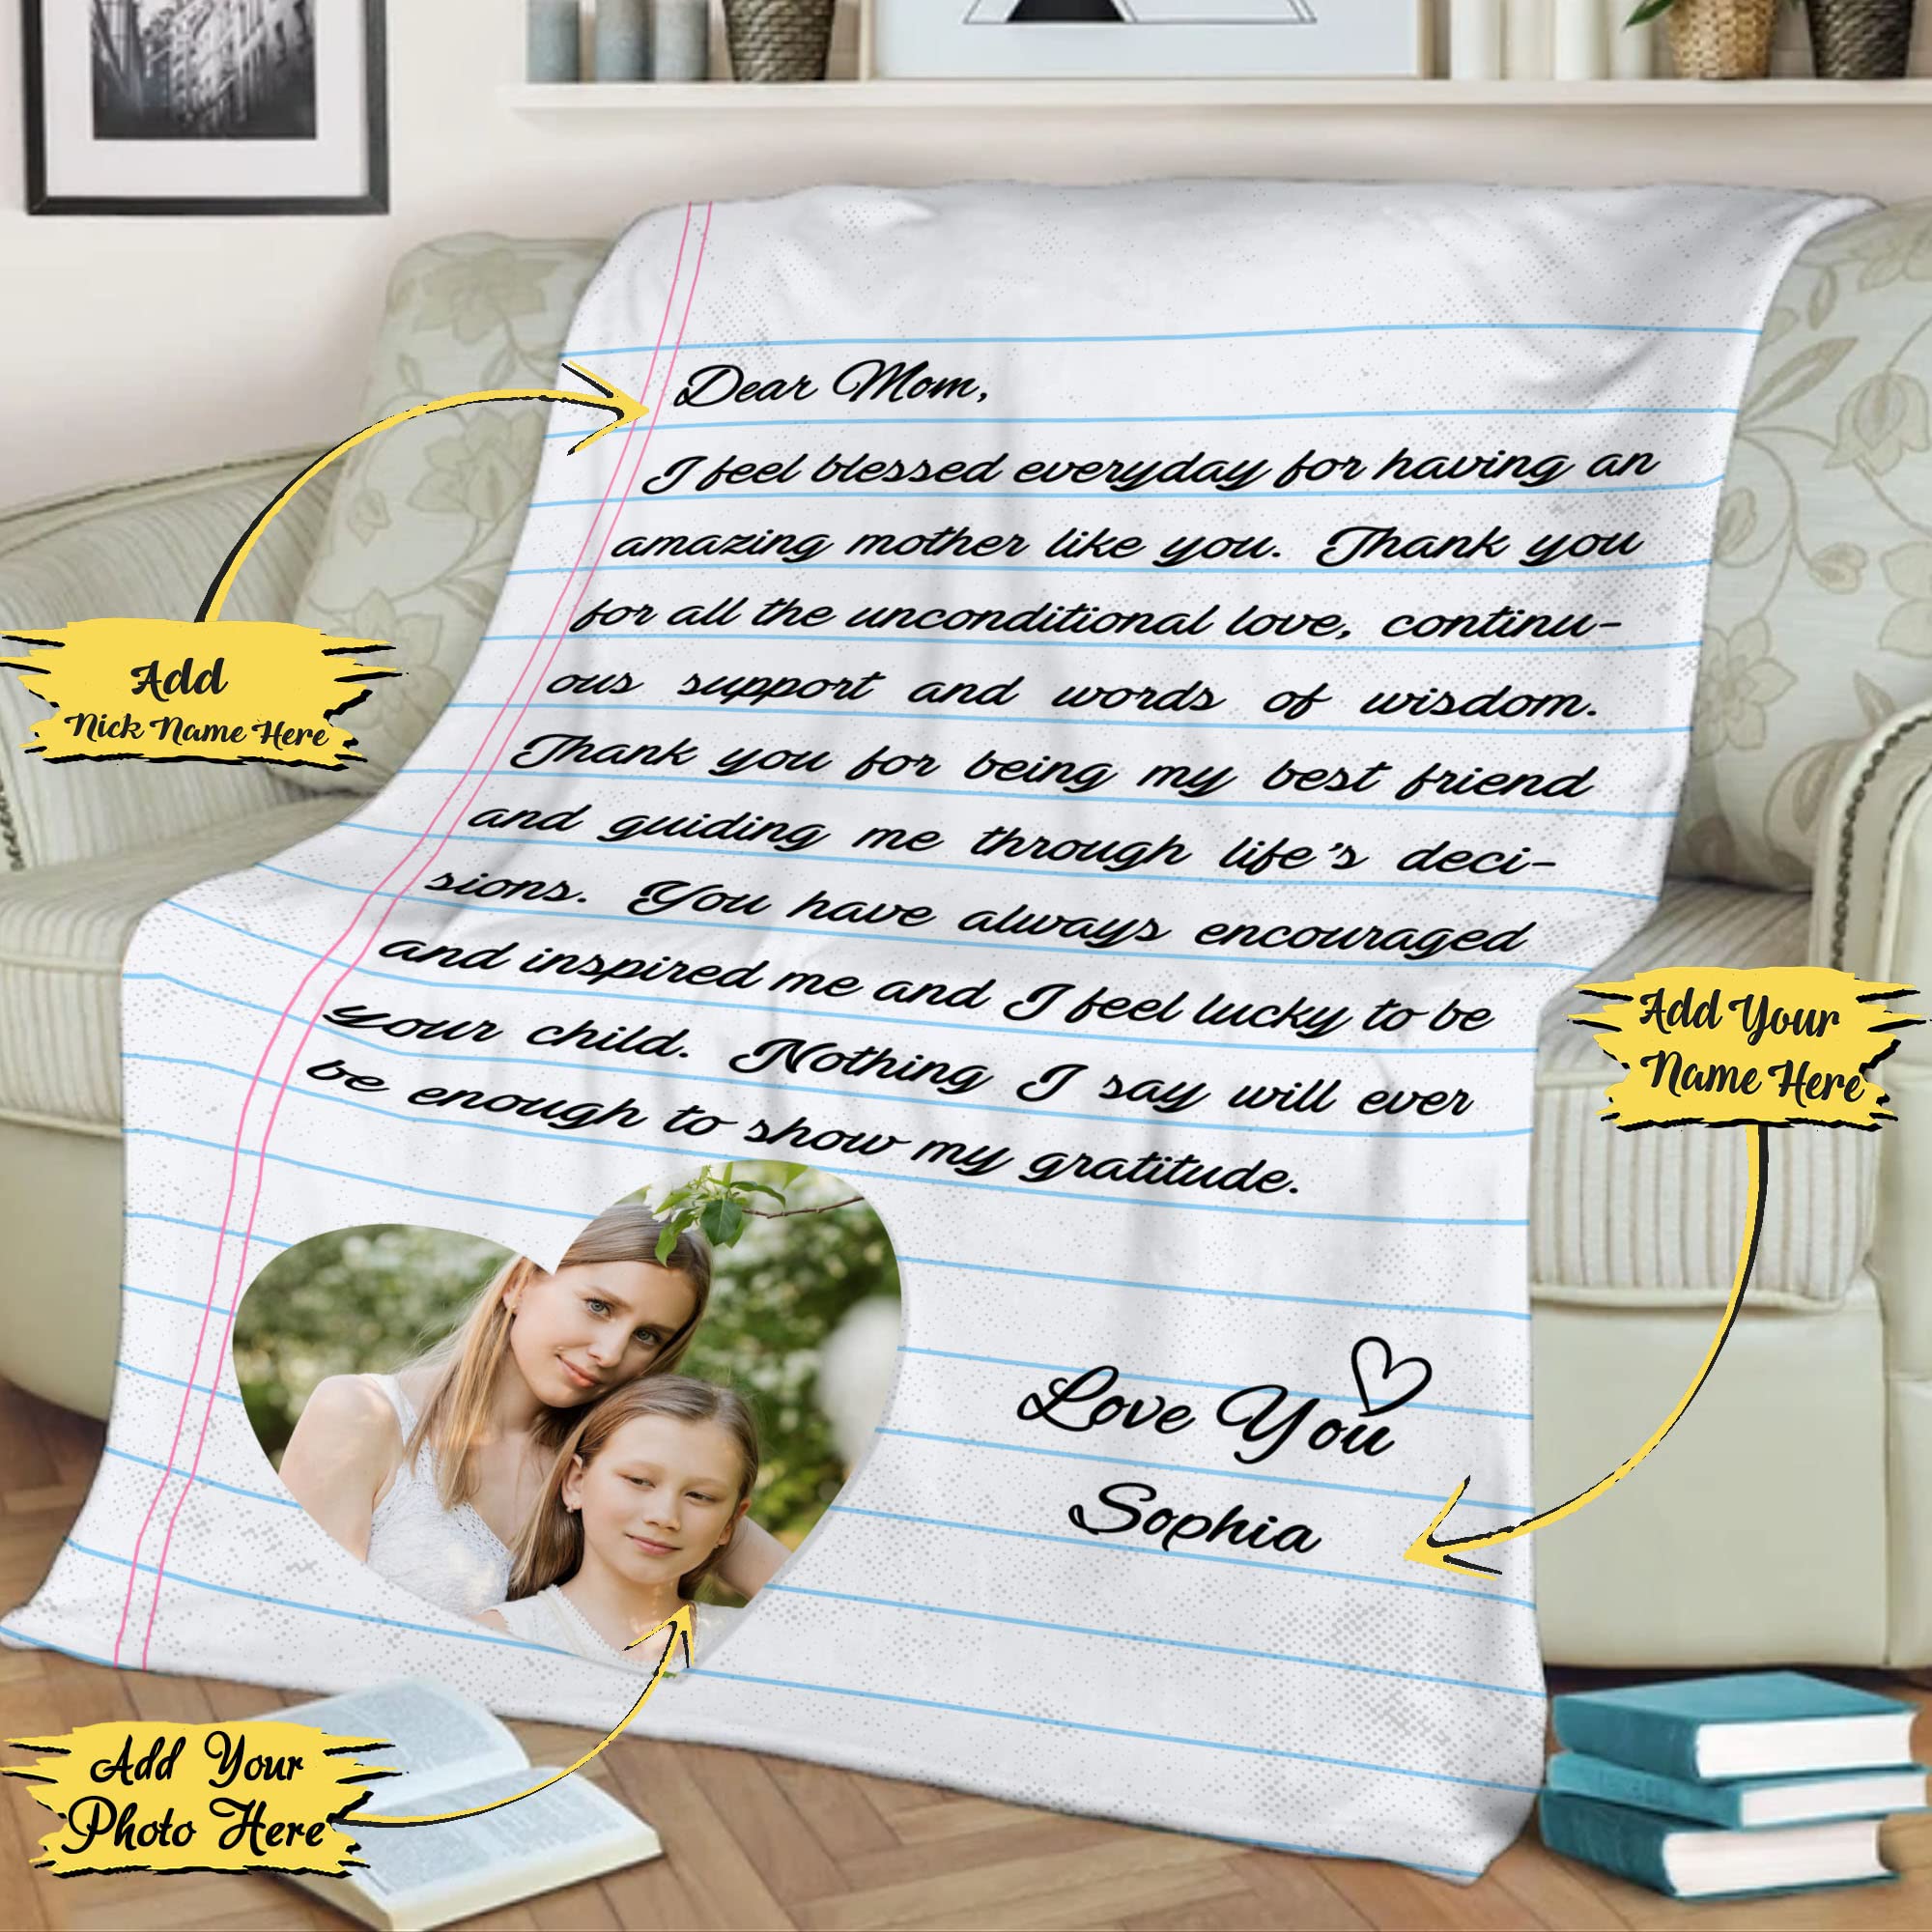 Dear Mom,
I feel blessed everyday for having an
amazing mother like you. Thank you
for all the unconditional love, continu-
ous support and words of wisdom.
Thank you for being my best friend
and guiding me through life's deci-
sions. You have always encouraged
and inspired me and I feel lucky to be
your child. Nothing I say will ever
be enough to show my gratitude.
Love You
Sophia
Add
Nick Name Here
Add Your
Name Here
Add Your
Photo Here